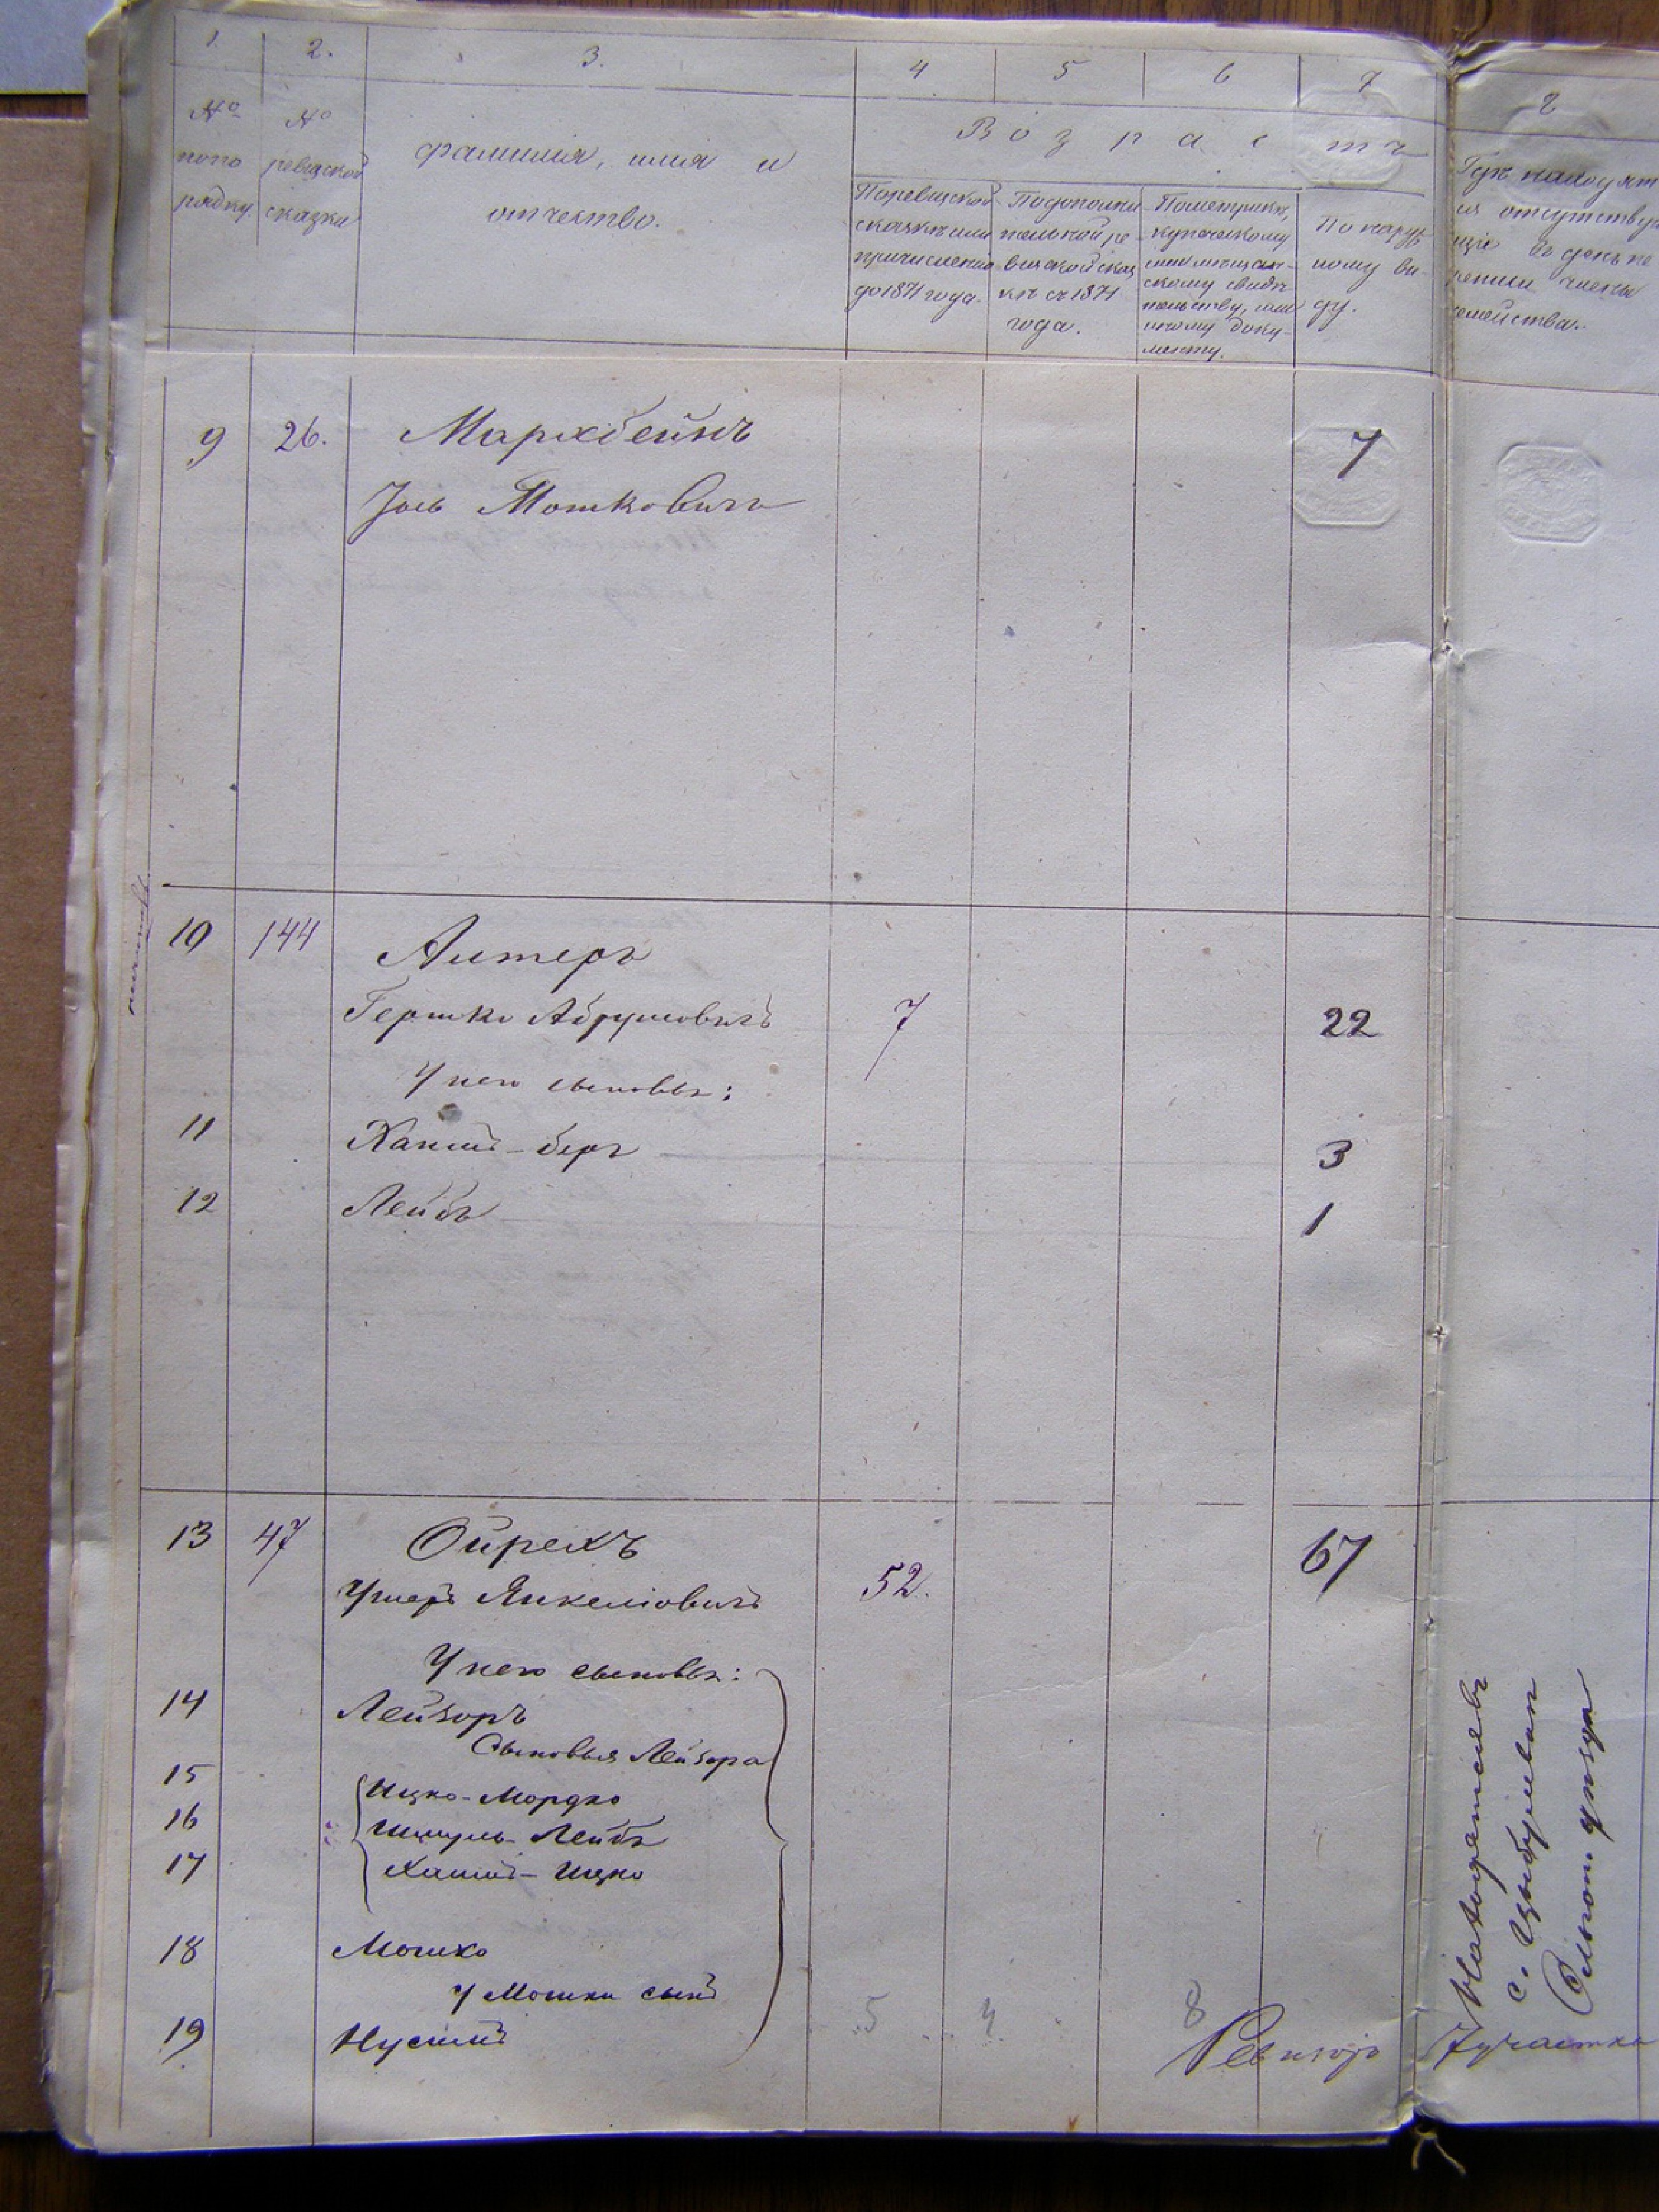 1. 2. 3. 4 5 6 7 8
№ по по рядку
№ ревизской сказки
фамилия, имя и отчество.
Возрастъ
По ревизской сказкѣ или причисленію до 1874 года.
По дополни тельной ре- визской сказ кѣ съ 1874 года.
По метрикѣ, купеческому или мѣщан- скому свидѣ тельству, или иному доку- менту.
По наруж ному ви- ду.
Гдѣ находят ся отсутствую щіе въ день по члены семейства.
9 26. Мархбейнъ 7
Іось Мошковичъ
10 144 Алтеръ
Гершко Абрумовичъ 7 22
У него сыновья:
11 Хаимъ-беръ 3
12 Лейба 1
13 47 Ойрехъ 67
Ушеръ Янкеліовичъ 52.
У него сыновья:
14 Лейзоръ
Сыновья Лейзора
15 Ицко-Мордко
16 Шмуль-Лейба
17 Хаимъ-Ицко
18 Мошко
У Мошки сынъ
19 Нусимъ
5 4 8
Находятся въ
с. Цыбулевъ
уѣзда
участка